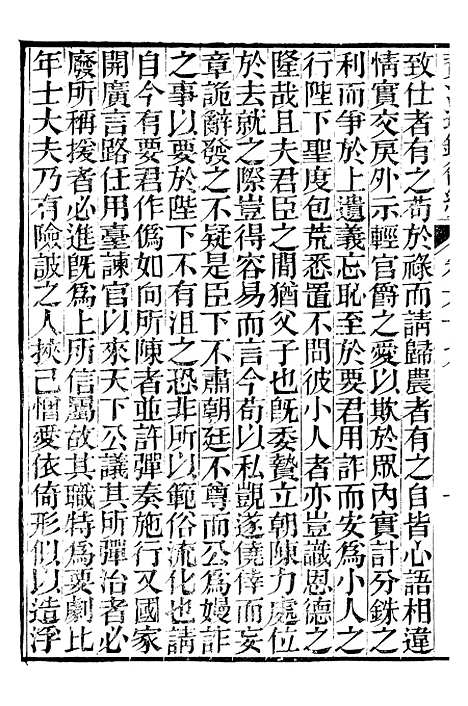 致仕者有之苟於祿而請歸農者有之自皆心語相違
情實交戾外示輕官爵之愛以欺於眾內實計分銖之
利而爭於上遺義忘恥至於要君用詐而安為小人之
行陛下聖度包荒悉置不問彼小人者亦豈識恩德之
隆哉且夫君臣之間猶父子也旣委贄立朝陳力處位
於去就之際豈得容易而言今苟以私覬遂僥倖而妄
章詭辭發之不疑是臣下不肅朝廷不尊而公為嫚詐
之事以要於陛下不有沮之恐非所以範俗流化也請
自今有要君作偽如向所陳者並許彈奏施行又國家
開廣言路任用臺諫官以來天下公議其所彈治者必
廢所稱援者必進旣為上所信屬故其職特為要劇比
年士大夫乃有險詖之人挾己憎愛依倚形似以造浮